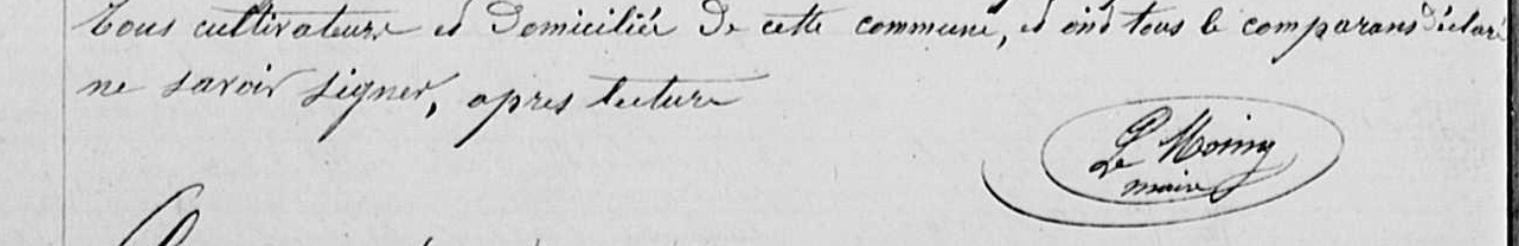 tous cultivateurs et domiciliée de cette commune, et ond tous le comparans déclaré
ne savoir signer, apres lecture
Le Moing
maire